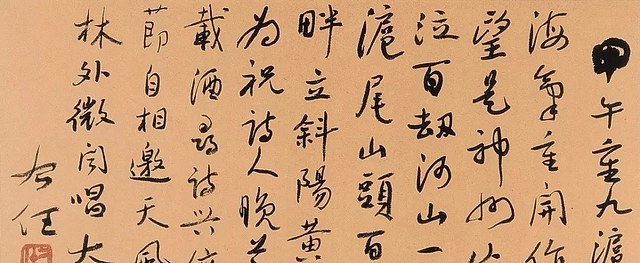 甲午重九滬
海氣重開作
望是神州
泣百劫河山一
滬尾山頭百
畔立斜陽黃
为祝詩人晚
載酒尋詩興
節自相邀天風
林外微聞唱大
右任